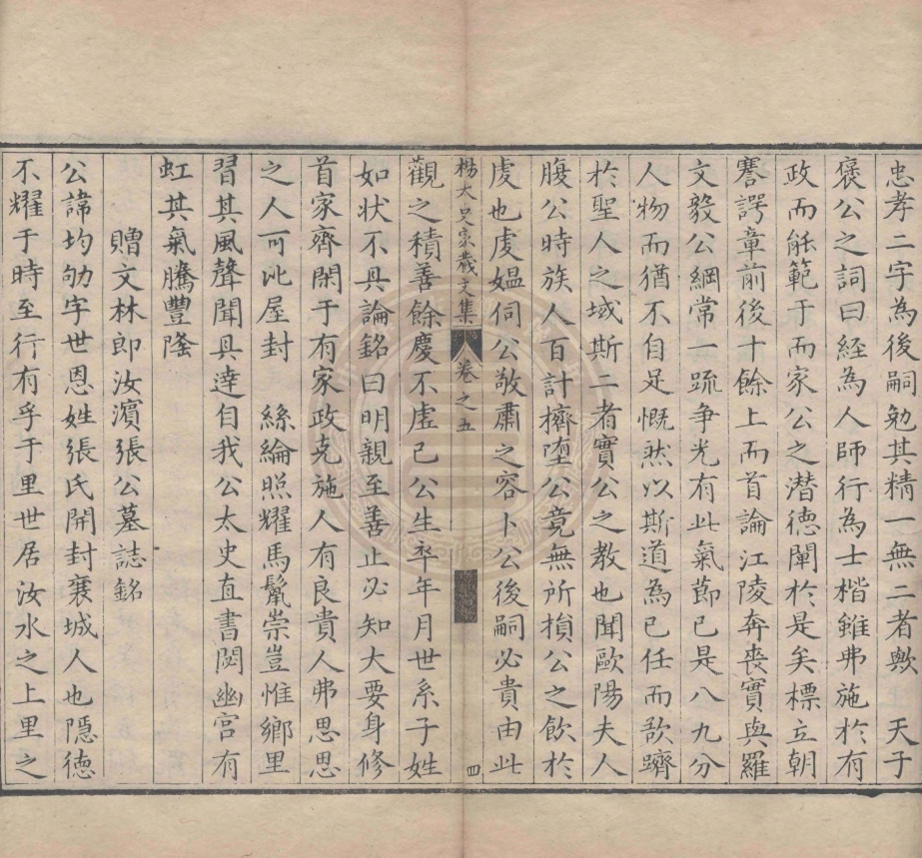 忠孝二字為後嗣勉其精一無二者歟　天子
褒公之詞曰經為人師行為士楷雖弗施於有
政而能範于而家公之潜德闡於是矣標立朝
謇諤章前後十餘上而首論江陵奔喪實與羅
文毅公綱常一疏争光有此氣節已是八九分
人物而猶不自足慨然以斯道為已任而歆躋
於聖人之域斯二者實公之教也聞歐陽夫人
腹公時族人百計擠墮公竟無所損公之飲於
虔也虔媼伺公敬肅之容卜公後嗣必貴由此
楊太史家藏文集　卷之五　四
觀之積善餘慶不虛已公生卒年月世系子姓
如状不具論銘曰明親至善止必知大要身修
首家齊閑于有家政克施人有良貴人弗思思
之人可比屋封　絲綸照耀馬鬣崇豈惟鄉里
習其風聲聞具達自我公太史直書閟幽宮有
虹其氣騰豐隆
贈文林郎汝濱張公墓誌銘
公諱均劬字世恩姓張氏開封襄城人也隱德
不耀于時至行有孚于里世居汝水之上里之